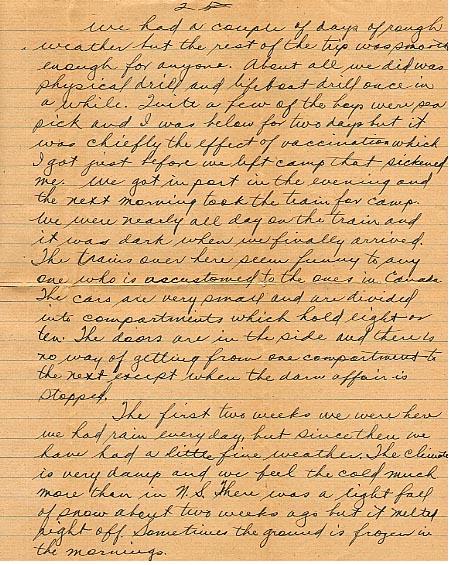 2
We had a couple of days of rough
weather but the rest of the trip was smooth
enough for anyone. About all we did was
physical drill and lifeboat drill once in
a while. Quite a few of the boys were sea
sick and I was below for two days but it
was chiefly the effect of vaccination which
I got just before we left camp that sickened
me. We got in port in the evening and
the next morning took the train for camp.
We were nearly all day on the train and
it was dark when we finally arrived.
The trains over here seem funny to any
one who is accustomed to the ones in Canada
The cars are very small and are divided
into compartments which hold eight or
ten. The doors are in the side and there is
no way of getting from one compartment to
the next except when the darn affair is
stopped.
The first two weeks we were here
we had rain every day, but since then we
have had a little fine weather. The climate
is very damp and we feel the cold much
more than in N.S. There was a light fall
of snow about two weeks ago but it melted
right off. Sometimes the ground is frozen in
the mornings.